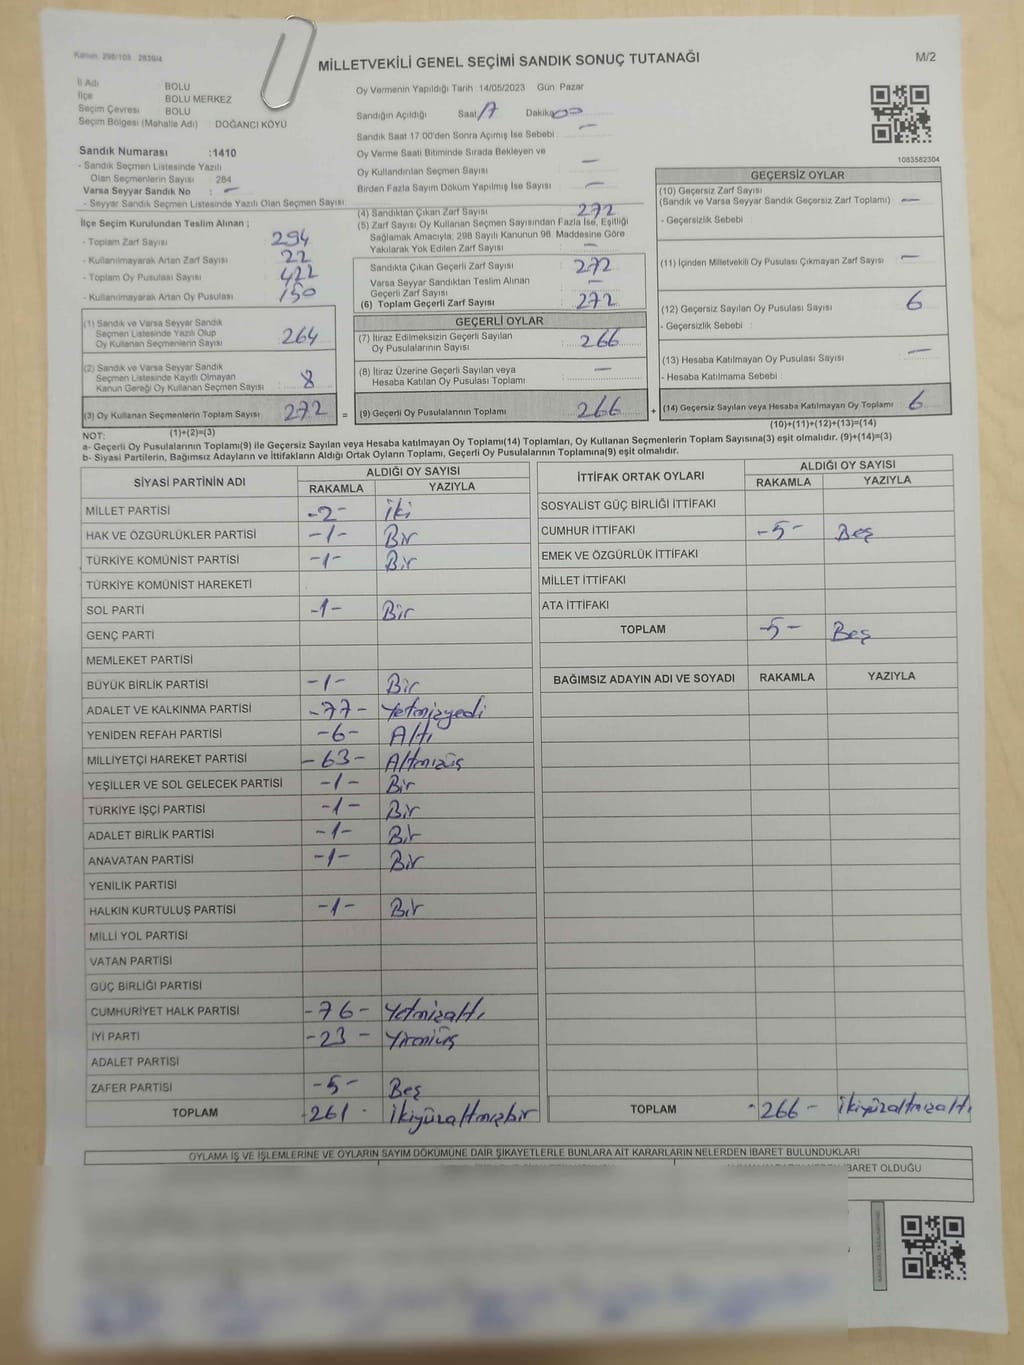 Kanun: 298/103 2839/4
MİLLETVEKİLİ GENEL SEÇİMİ SANDIK SONUÇ TUTANAĞI
M/2
İl Adı BOLU
İlçe BOLU MERKEZ
Seçim Çevresi BOLU
Seçim Bölgesi (Mahalle Adı) DOĞANCI KÖYÜ
Sandık Numarası :1410
- Sandık Seçmen Listesinde Yazılı
Olan Seçmenlerin Sayısı : 284
Varsa Seyyar Sandık No : -
- Seyyar Sandık Seçmen Listesinde Yazılı Olan Seçmen Sayısı :
Oy Vermenin Yapıldığı Tarih 14/05/2023 Gün Pazar
Sandığın Açıldığı Saat 17 Dakika 00
Sandık Saat 17.00'den Sonra Açılmış İse Sebebi : -
Oy Verme Saati Bitiminde Sırada Bekleyen ve
Oy Kullandırılan Seçmen Sayısı -
Birden Fazla Sayım Döküm Yapılmış İse Sayısı -
1083582304
İlçe Seçim Kurulundan Teslim Alınan ;
- Toplam Zarf Sayısı 294
- Kullanılmayarak Artan Zarf Sayısı : 22
- Toplam Oy Pusulası Sayısı : 422
- Kullanılmayarak Artan Oy Pusulası : 150
(1) Sandık ve Varsa Seyyar Sandık
Seçmen Listesinde Yazılı Olup
Oy Kullanan Seçmenlerin Sayısı : 264
(2) Sandık ve Varsa Seyyar Sandık
Seçmen Listesinde Kayıtlı Olmayan
Kanun Gereği Oy Kullanan Seçmen Sayısı : 8
(3) Oy Kullanan Seçmenlerin Toplam Sayısı : 272
(1)+(2)=(3)
(4) Sandıktan Çıkan Zarf Sayısı 272
(5) Zarf Sayısı Oy Kullanan Seçmen Sayısından Fazla İse, Eşitliği
Sağlamak Amacıyla, 298 Sayılı Kanunun 98. Maddesine Göre
Yakılarak Yok Edilen Zarf Sayısı : -
Sandıkta Çıkan Geçerli Zarf Sayısı : 272
Varsa Seyyar Sandıktan Teslim Alınan
Geçerli Zarf Sayısı : -
(6) Toplam Geçerli Zarf Sayısı : 272
GEÇERLİ OYLAR
(7) İtiraz Edilmeksizin Geçerli Sayılan
Oy Pusulalarının Sayısı : 266
(8) İtiraz Üzerine Geçerli Sayılan veya
Hesaba Katılan Oy Pusulası Toplamı : -
= (9) Geçerli Oy Pusulalarının Toplamı : 266
GEÇERSİZ OYLAR
(10) Geçersiz Zarf Sayısı
(Sandık ve Varsa Seyyar Sandık Geçersiz Zarf Toplamı) : -
- Geçersizlik Sebebi :
(11) İçinden Milletvekili Oy Pusulası Çıkmayan Zarf Sayısı : -
(12) Geçersiz Sayılan Oy Pusulası Sayısı : 6
- Geçersizlik Sebebi :
(13) Hesaba Katılmayan Oy Pusulası Sayısı : -
- Hesaba Katılmama Sebebi :
+ (14) Geçersiz Sayılan veya Hesaba Katılmayan Oy Toplamı : 6
(10)+(11)+(12)+(13)=(14)
NOT:
a- Geçerli Oy Pusulalarının Toplamı(9) ile Geçersiz Sayılan veya Hesaba katılmayan Oy Toplamı(14) Toplamları, Oy Kullanan Seçmenlerin Toplam Sayısına(3) eşit olmalıdır. (9)+(14)=(3)
b- Siyasi Partilerin, Bağımsız Adayların ve İttifakların Aldığı Ortak Oyların Toplamı, Geçerli Oy Pusulalarının Toplamına(9) eşit olmalıdır.
SİYASİ PARTİNİN ADI ALDIĞI OY SAYISI
RAKAMLA YAZIYLA
MİLLET PARTİSİ -2- İki
HAK VE ÖZGÜRLÜKLER PARTİSİ -1- Bir
TÜRKİYE KOMÜNİST PARTİSİ -1- Bir
TÜRKİYE KOMÜNİST HAREKETİ
SOL PARTİ -1- Bir
GENÇ PARTİ
MEMLEKET PARTİSİ
BÜYÜK BİRLİK PARTİSİ -1- Bir
ADALET VE KALKINMA PARTİSİ -77- Yetmişyedi
YENİDEN REFAH PARTİSİ -6- Altı
MİLLİYETÇİ HAREKET PARTİSİ -63- Altmışüç
YEŞİLLER VE SOL GELECEK PARTİSİ -1- Bir
TÜRKİYE İŞÇİ PARTİSİ -1- Bir
ADALET BİRLİK PARTİSİ -1- Bir
ANAVATAN PARTİSİ -1- Bir
YENİLİK PARTİSİ
HALKIN KURTULUŞ PARTİSİ -1- Bir
MİLLİ YOL PARTİSİ
VATAN PARTİSİ
GÜÇ BİRLİĞİ PARTİSİ
CUMHURİYET HALK PARTİSİ -76- Yetmişaltı
İYİ PARTİ -23- Yirmiüç
ADALET PARTİSİ
ZAFER PARTİSİ -5- Beş
TOPLAM -261- İkiyüzaltmışbir
İTTİFAK ORTAK OYLARI ALDIĞI OY SAYISI
RAKAMLA YAZIYLA
SOSYALİST GÜÇ BİRLİĞİ İTTİFAKI
CUMHUR İTTİFAKI -5- Beş
EMEK VE ÖZGÜRLÜK İTTİFAKI
MİLLET İTTİFAKI
ATA İTTİFAKI
TOPLAM -5- Beş
BAĞIMSIZ ADAYIN ADI VE SOYADI RAKAMLA YAZIYLA
TOPLAM -266- İkiyüzaltmışaltı
OYLAMA İŞ VE İŞLEMLERİNE VE OYLARIN SAYIM DÖKÜMÜNE DAİR ŞİKAYETLERLE BUNLARA AİT KARARLARIN NELERDEN İBARET BULUNDUKLARI
İBARET OLDUĞU